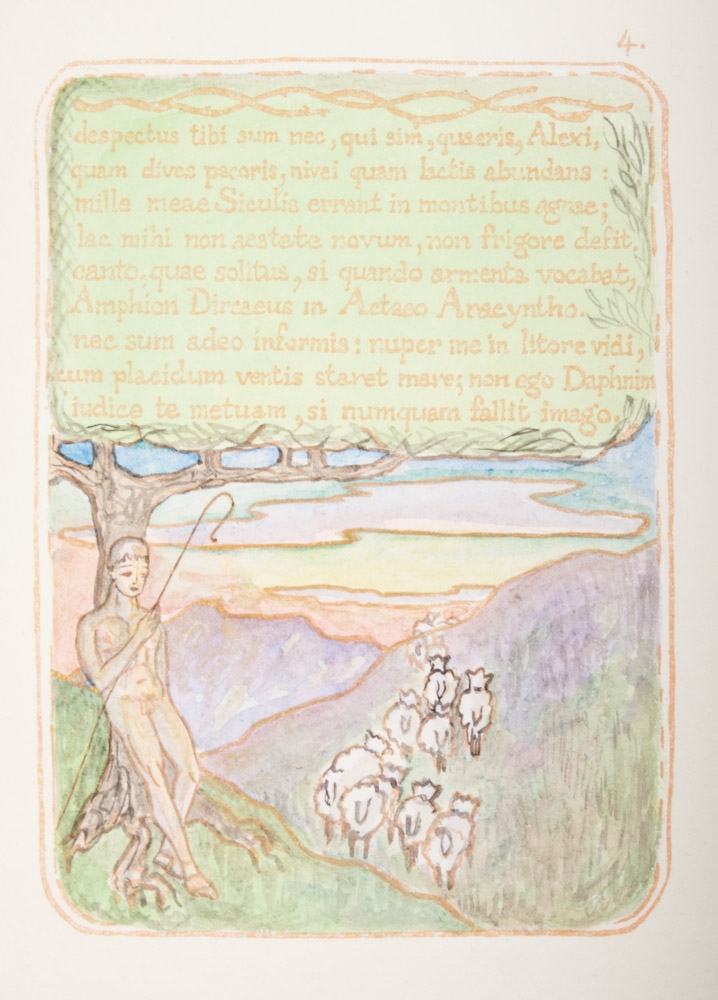 4.
despectus tibi sum nec, qui sim, quaeris, Alexi,
quam dives pecoris, nivei quam lactis abundans :
mille meae Siculis errant in montibus agnae;
lac mihi non aestate novum, non frigore defit.
canto, quae solitus, si quando armenta vocabat,
Amphion Dircaeus in Actaeo Aracyntho.
nec sum adeo informis : nuper me in litore vidi,
cum placidum ventis staret mare; non ego Daphnim
iudice te metuam, si numquam fallit imago.